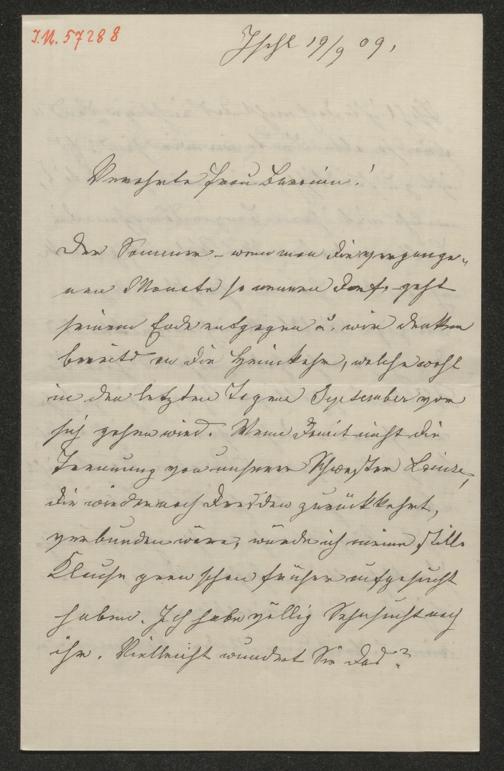 I.N. 57288
Ischl 19/9 09.
Verehrte Frau Baronin!
Der Sommer – wenn man die vergange„
nen Monate so nennen darf, geht
seinem Ende entgegen u. wir denken
bereits an die Heimkehr, welche wohl
in den letzten Tagen September vor
sich gehen wird. Wenn damit nicht die
Trennung von unserer Schwester Louise,
die wieder nach Dresden zurückkehrt,
verbunden wäre, würde ich meine stille
Klause gern schon früher aufgesucht
haben. Ich habe völlig Sehnsucht nach
ihr. Vielleicht wundert Sie das?